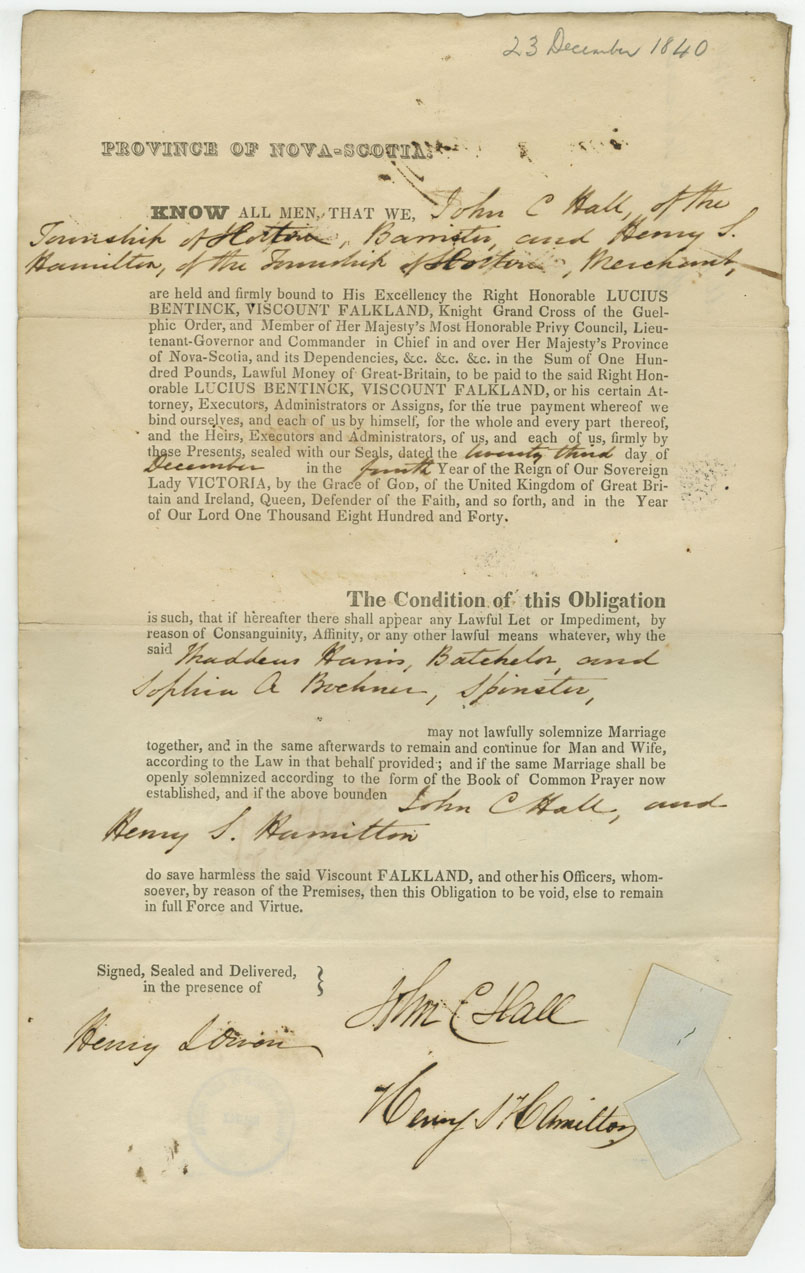 23 December 1840
PROVINCE OF NOVA-SCOTIA.
KNOW ALL MEN, THAT WE, John C Hall, of the
Township of Horton, Barrister, and Henry S.
Hamilton, of the Township of Horton, Merchant,
are held and firmly bound to His Excellency the Right Honorable LUCIUS
BENTINCK, VISCOUNT FALKLAND, Knight Grand Cross of the Guel-
phic Order, and Member of Her Majesty's Most Honorable Privy Council, Lieu-
tenant-Governor and Commander in Chief in and over Her Majesty's Province
of Nova-Scotia, and its Dependencies, &c. &c. &c. in the Sum of One Hun-
dred Pounds, Lawful Money of Great-Britain, to be paid to the said Right Hon-
orable LUCIUS BENTINCK, VISCOUNT FALKLAND, or his certain At-
torney, Executors, Administrators or Assigns, for the true payment whereof we
bind ourselves, and each of us by himself, for the whole and every part thereof,
and the Heirs, Executors and Administrators, of us, and each of us, firmly by
these Presents, sealed with our Seals, dated the twenty third day of
December in the fourth Year of the Reign of Our Sovereign
Lady VICTORIA, by the Grace of GOD, of the United Kingdom of Great Bri-
tain and Ireland, Queen, Defender of the Faith, and so forth, and in the Year
of Our Lord One Thousand Eight Hundred and Forty.
The Condition of this Obligation
is such, that if hereafter there shall appear any Lawful Let or Impediment, by
reason of Consanguinity, Affinity, or any other lawful means whatever, why the
said Thaddeus Harris, Batchelor, and
Sophia A Boehner, Spinster,
may not lawfully solemnize Marriage
together, and in the same afterwards to remain and continue for Man and Wife,
according to the Law in that behalf provided; and if the same Marriage shall be
openly solemnized according to the form of the Book of Common Prayer now
established, and if the above bounden John C Hall, and
Henry S. Hamilton
do save harmless the said Viscount FALKLAND, and other his Officers, whom-
soever, by reason of the Premises, then this Obligation to be void, else to remain
in full Force and Virtue.
Signed, Sealed and Delivered,
in the presence of
John C Hall
Henry
Henry S Hamilton